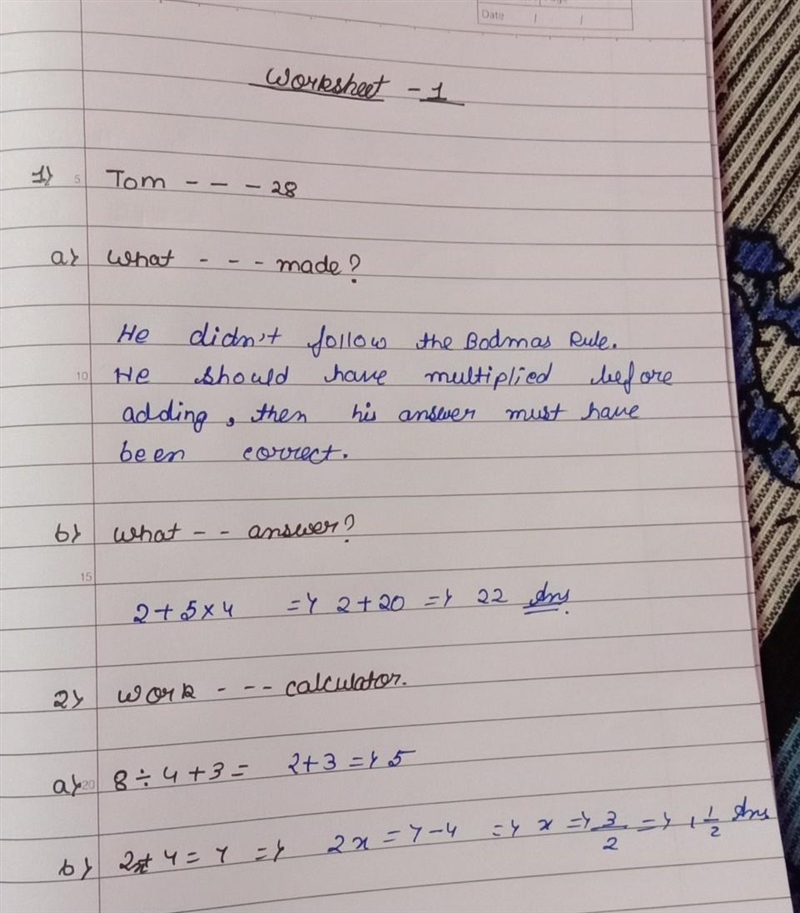 Date / /
Worksheet - 1
1) 5 Tom - - - 28
a) What - - - made?
He didn't follow the Bodmas Rule.
10 He should have multiplied before
adding, then his answer must have
been correct.
b) What - - answer?
15
2 + 5 × 4 => 2 + 20 => 22 Ans.
2) Work - - - calculator.
a) 20 8 ÷ 4 + 3 = 2 + 3 => 5
b) 4 = 7 => 2x = 7 - 4 => x => 3/2 => 1 1/2 Ans